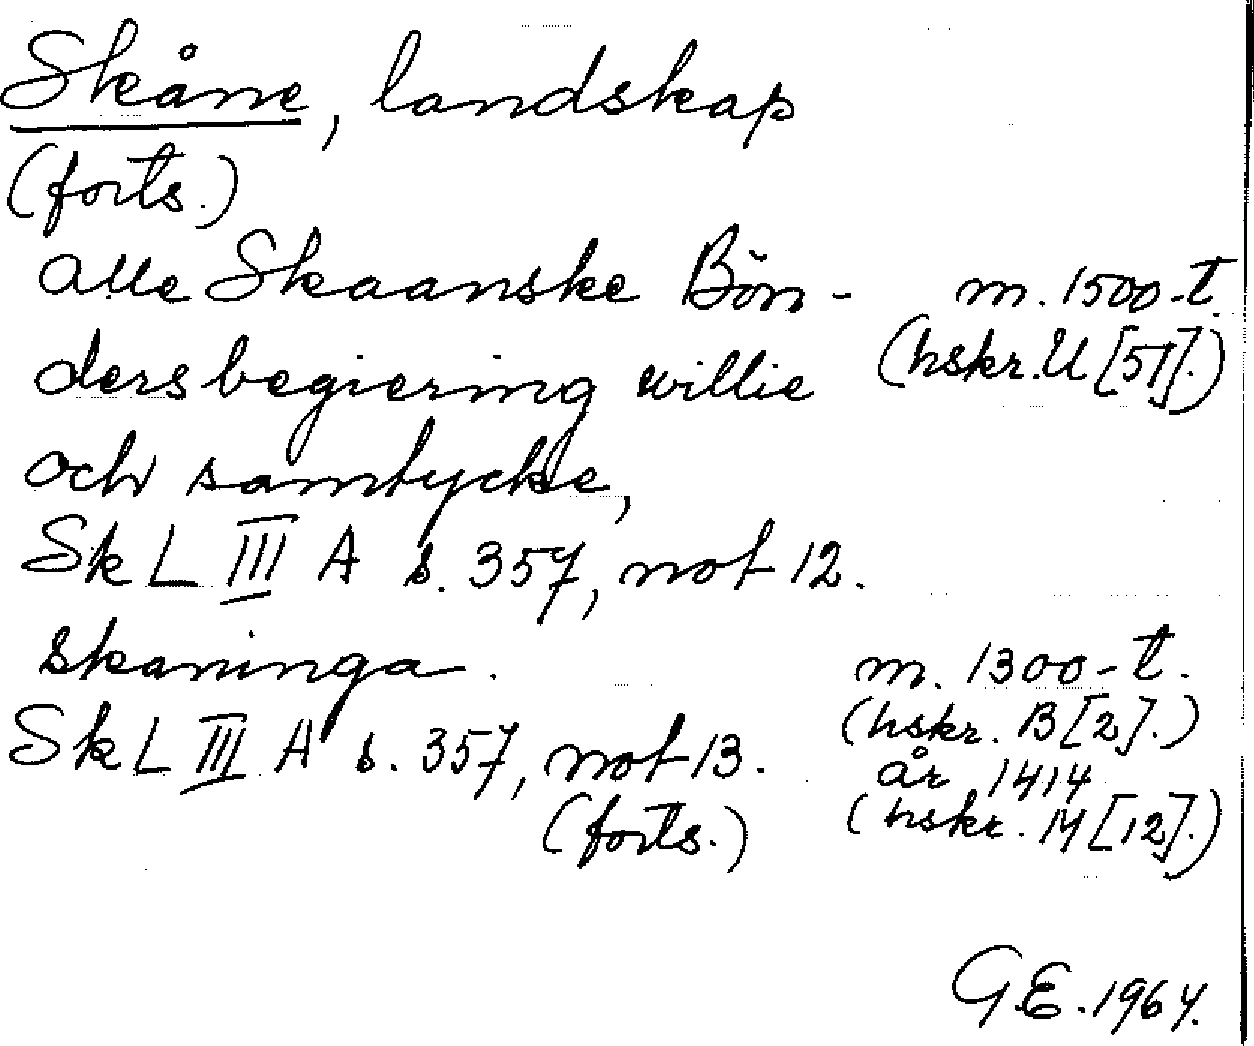 Skåne, landskap
(forts.)
alle Skaanske Bön- m. 1500-t.
ders begiering willie (hskr. U [51].)
och samtycke,
Sk L III A s. 357, not 12.
skaninga. m. 1300-t.
(hskr. B [2].)
Sk L III A s. 357, not 13. år 1414
(forts.) (hskr. M [12].)
G.E. 1964.